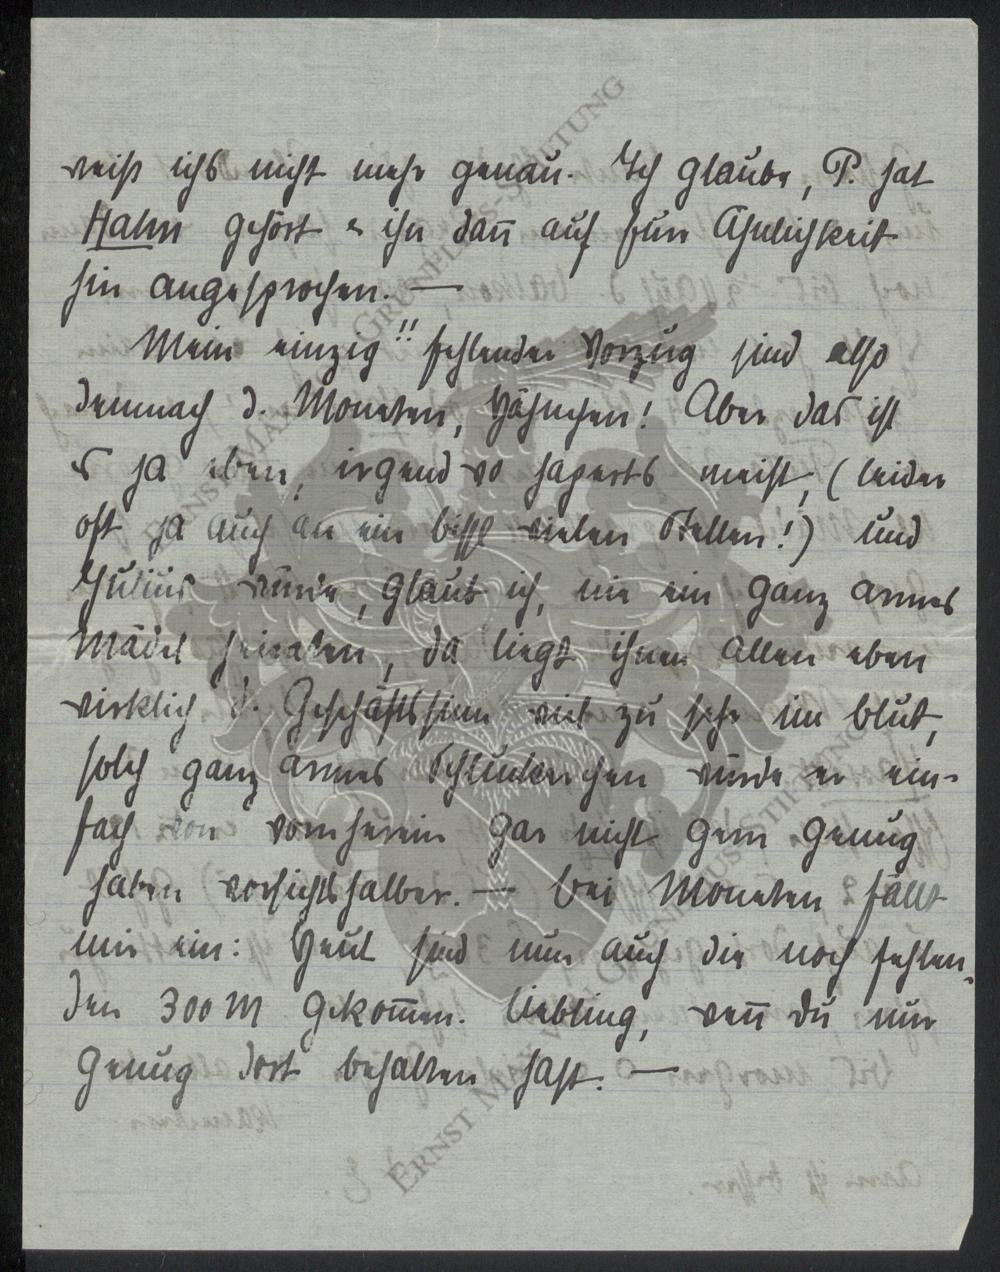 weiß ichs nicht mehr genau. Ich glaube, P. hat
Hahn gehört & ihn dañ auf Ähnlichkeit
hin angesprochen. —
Mein einzig!! fehlender Vorzug sind also
demnach d. Moneten, Hähnchen! Aber das ist
es ja eben, irgend wo haperts meist, (leider
oft ja auch an ein bissl vielen Stellen!) und
Julius würde, glaub ich, nie ein ganz armes
Mädel heiraten, da liegt ihnen Allen eben
wirklich d. Geschäftssinn viel zu sehr im Blut,
solch ganz armes Schluckerchen würde er ein-
fach von vornherein gar nicht gern genug
haben vorsichtshalber. — Bei Moneten fällt
mir ein: Heut sind nun auch die noch fehlen-
den 300 M gekom̄en. Liebling, weñ du nur
genug dort behalten hast. —
ERNST MAX VON GRUNELIUS-STIFTUNG
ERNST MAX VON GRUNELIUS-STIFTUNG